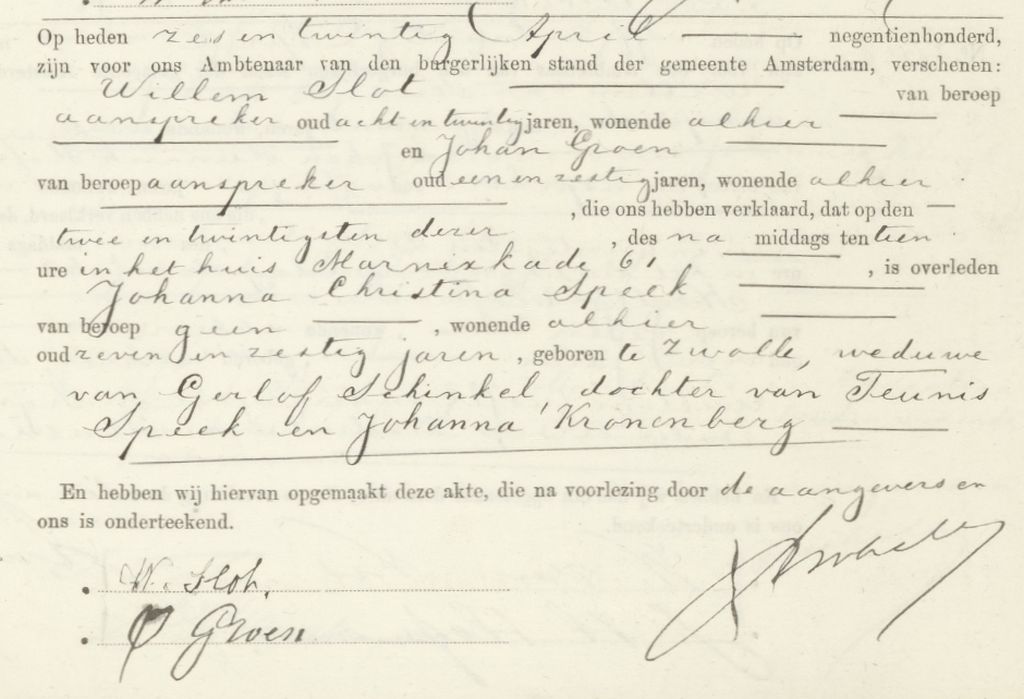 Op heden zes en twintig April negentienhonderd,
zijn voor ons Ambtenaar van den burgerlijken stand der gemeente Amsterdam, verschenen:
Willem Slot van beroep
aanspreker oud acht en twintig jaren, wonende alhier
en Johan Groen
van beroep aanspreker oud een en zestig jaren, wonende alhier
, die ons hebben verklaard, dat op den
twee en twintigsten dezer , des na middags ten tien
ure in het huis Marnixkade 61 , is overleden
Johanna Christina Speek
van beroep geen , wonende alhier
oud zeven en zestig jaren , geboren te Zwolle, weduwe
van Gerlof Schinkel, dochter van Teunis
Speek en Johanna Kronenberg
En hebben wij hiervan opgemaakt deze akte, die na voorlezing door de aangevers en
ons is onderteekend.
W. Slot.
Groen